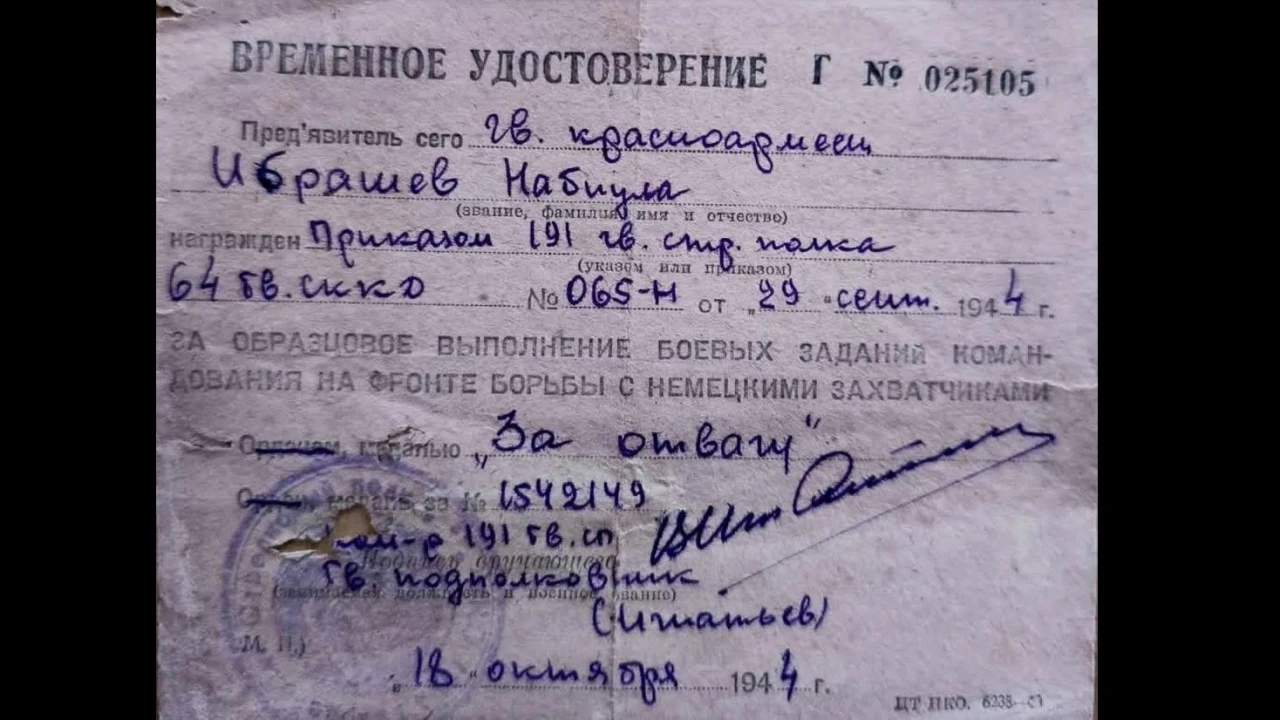 ВРЕМЕННОЕ УДОСТОВЕРЕНИЕ Г № 025105
Пред'явитель сего гв. красноармеец
Ибрашев Набиула
(звание, фамилия, имя и отчество)
награжден Приказом 191 гв. стр. полка
(указом или приказом)
64 гв. скКД № 065-Н от „29" сент. 1944 г.
ЗА ОБРАЗЦОВОЕ ВЫПОЛНЕНИЕ БОЕВЫХ ЗАДАНИЙ КОМАН-
ДОВАНИЯ НА ФРОНТЕ БОРЬБЫ С НЕМЕЦКИМИ ЗАХВАТЧИКАМИ
Орденом, медалью „За отвагу"
Орден, медаль за № 1542149
Ком-р 191 гв. сп
Подпись вручающего
гв. подполковник
(занимаемая должность и военное звание)
(Игнатьев)
М. П.
„18" октября 1944 г.
ЦТ НКО. 6238